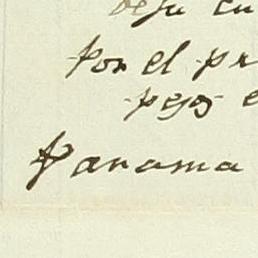 deja en
Por el pr
pesos e
Panama